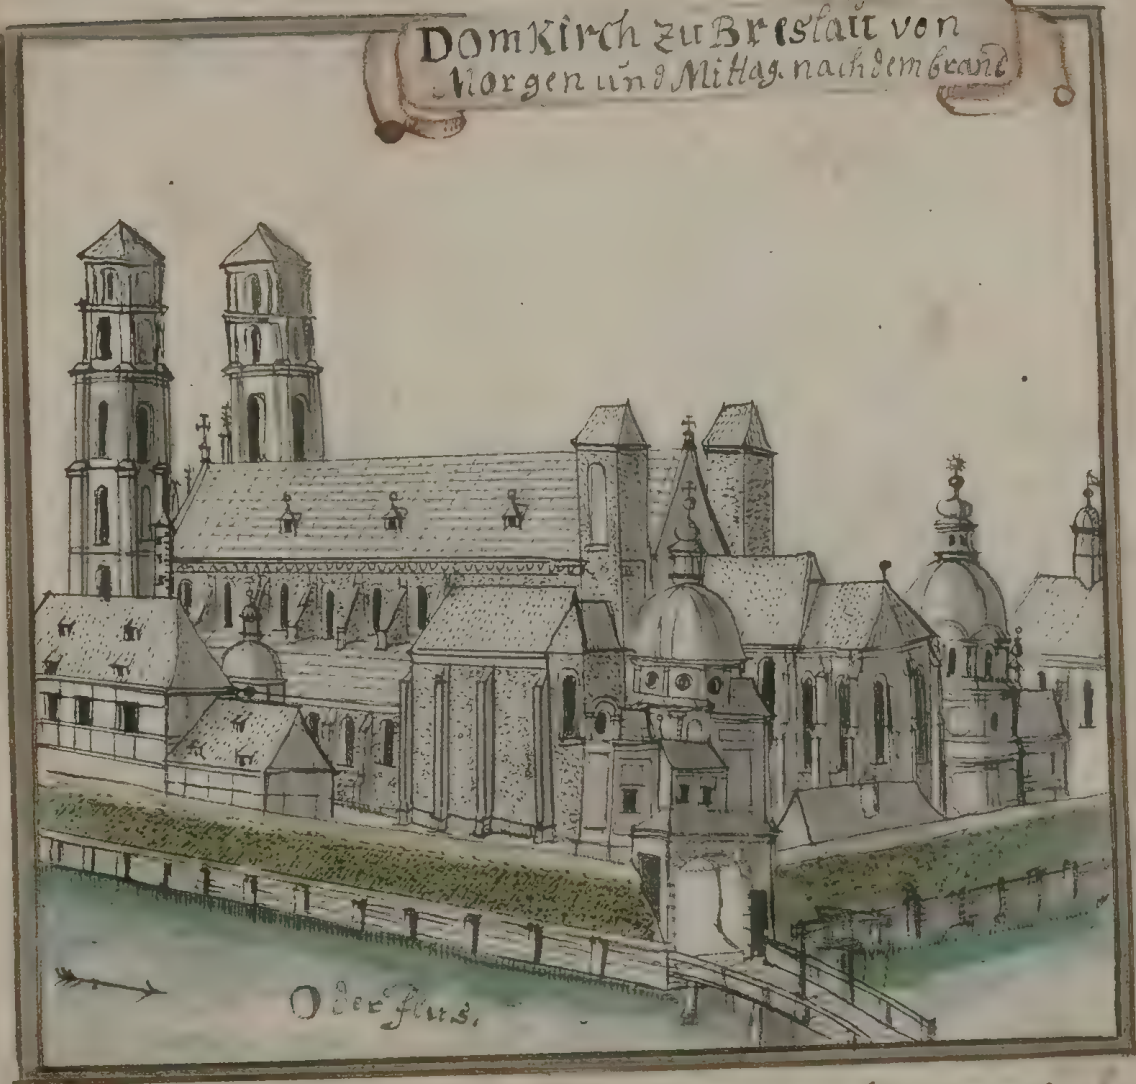 DomKirch zu Breslau von
Morgen und Mittag. nach dem brand
Oder flus.